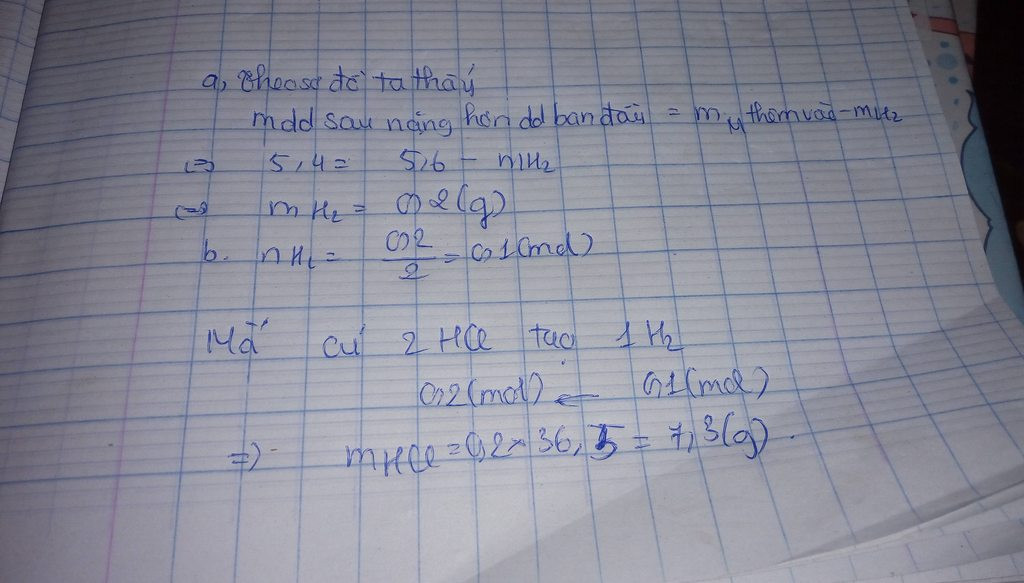 a, Theo sơ đồ ta thấy
mdd sau nặng hơn dd ban đầu = mM thêm vào - mH2
⇔ 5,4 = 5,6 - mH2
⇔ mH2 = 0,2(g)
b. nH2 = 0,2/2 = 0,1(mol)
Mà cứ 2 HCl tạo 1 H2
0,2(mol) ← 0,1(mol)
=> mHCl = 0,2 × 36,5 = 7,3(g).